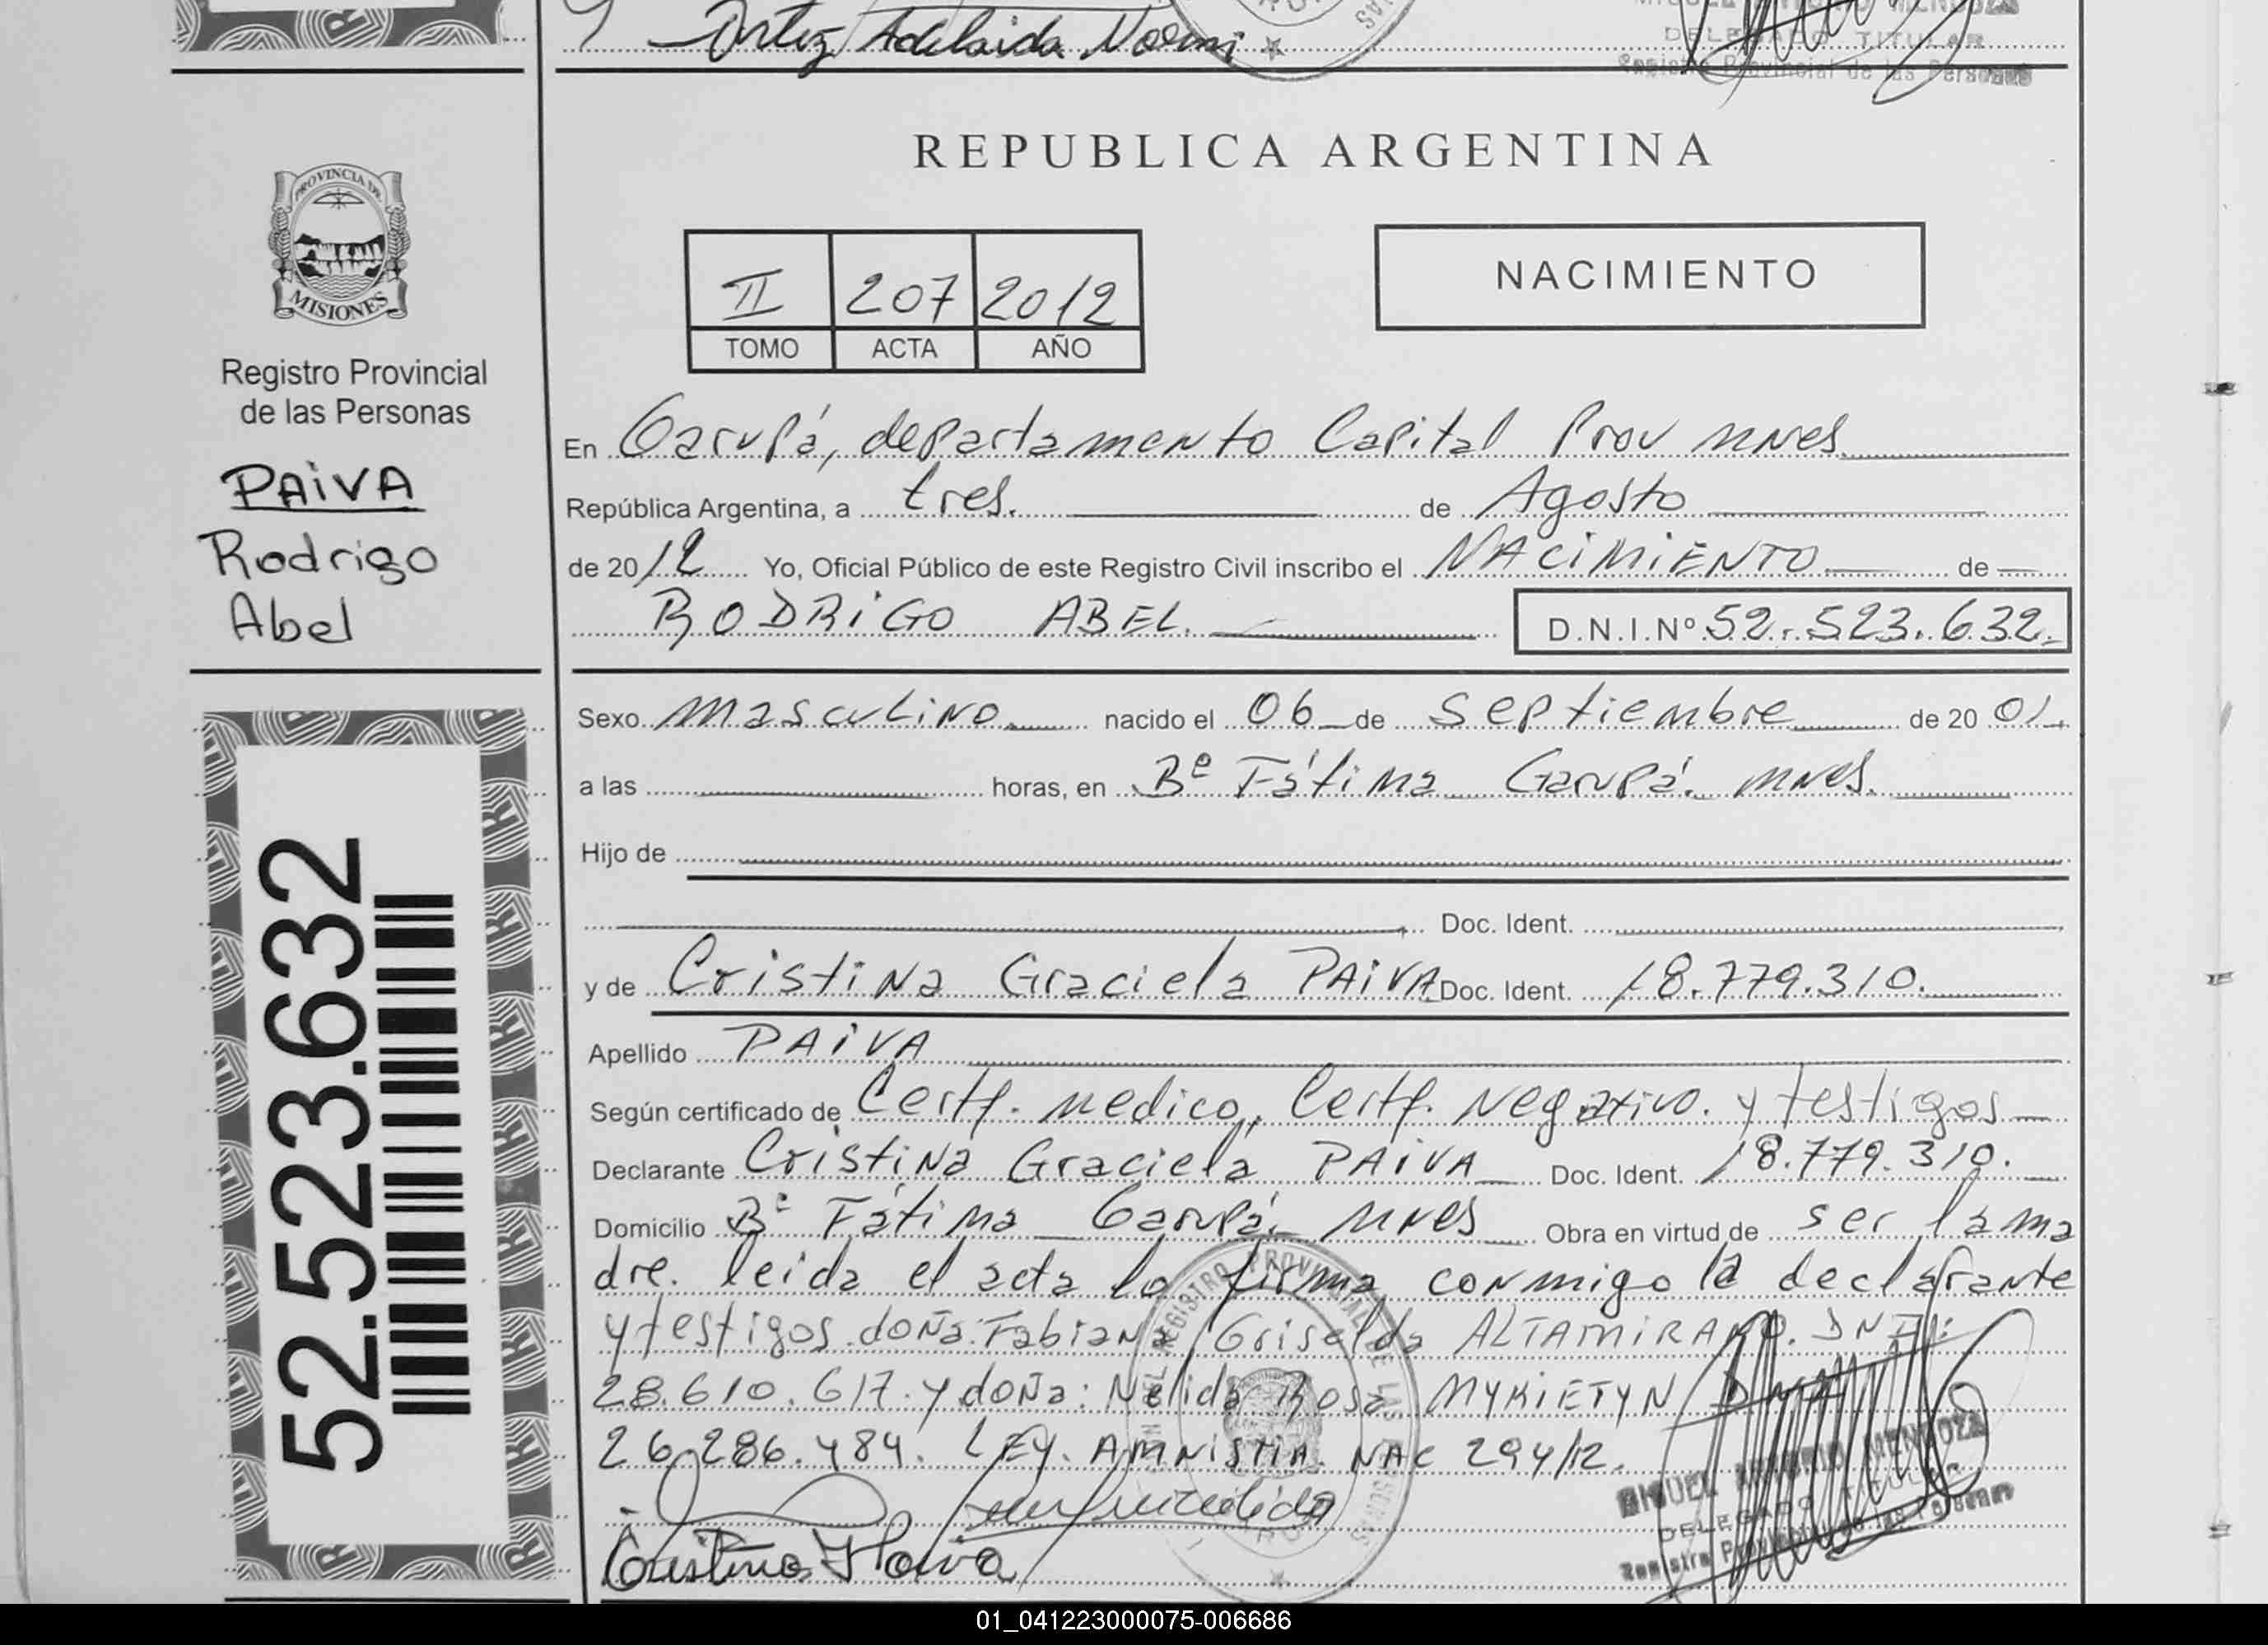 Ortiz Adelaida Noemi
DELEGADO TITULAR
Registro Provincial de las Personas
REPUBLICA ARGENTINA
PROVINCIA DE
MISIONES
Registro Provincial
de las Personas
PAIVA
Rodrigo
Abel
II 207 2012
TOMO ACTA AÑO
NACIMIENTO
En Garupá, departamento Capital Prov Mnes
República Argentina, a tres. de Agosto
de 2012 Yo, Oficial Público de este Registro Civil inscribo el NACIMIENTO de
RODRIGO ABEL. D.N.I.Nº 52.523.632.
Sexo masculino nacido el 06 de septiembre de 2001
a las horas, en Bº Fátima Garupá. Mnes.
Hijo de
Doc. Ident.
y de Cristina Graciela PAIVA Doc. Ident. 18.779.310.
Apellido PAIVA
Según certificado de Certf. medico, Certf. Negativo. y testigos
Declarante Cristina Graciela PAIVA Doc. Ident. 18.779.310.
Domicilio Bº Fátima Garupá. Mnes Obra en virtud de ser la ma
dre. leida el acta lo firma conmigo la declarante
y testigos. doña: Fabiana Griselda ALTAMIRANO. DNI:
28.610.617. y doña: Nelida Rosa MYKIETYN DNI
26.286.484. LEY. AMNISTIA. NAC 294/12.
MIGUEL ANTONIO MENDOZA
DELEGADO TITULAR
Registro Provincial de las Personas
52.523.632
01_041223000075-006686